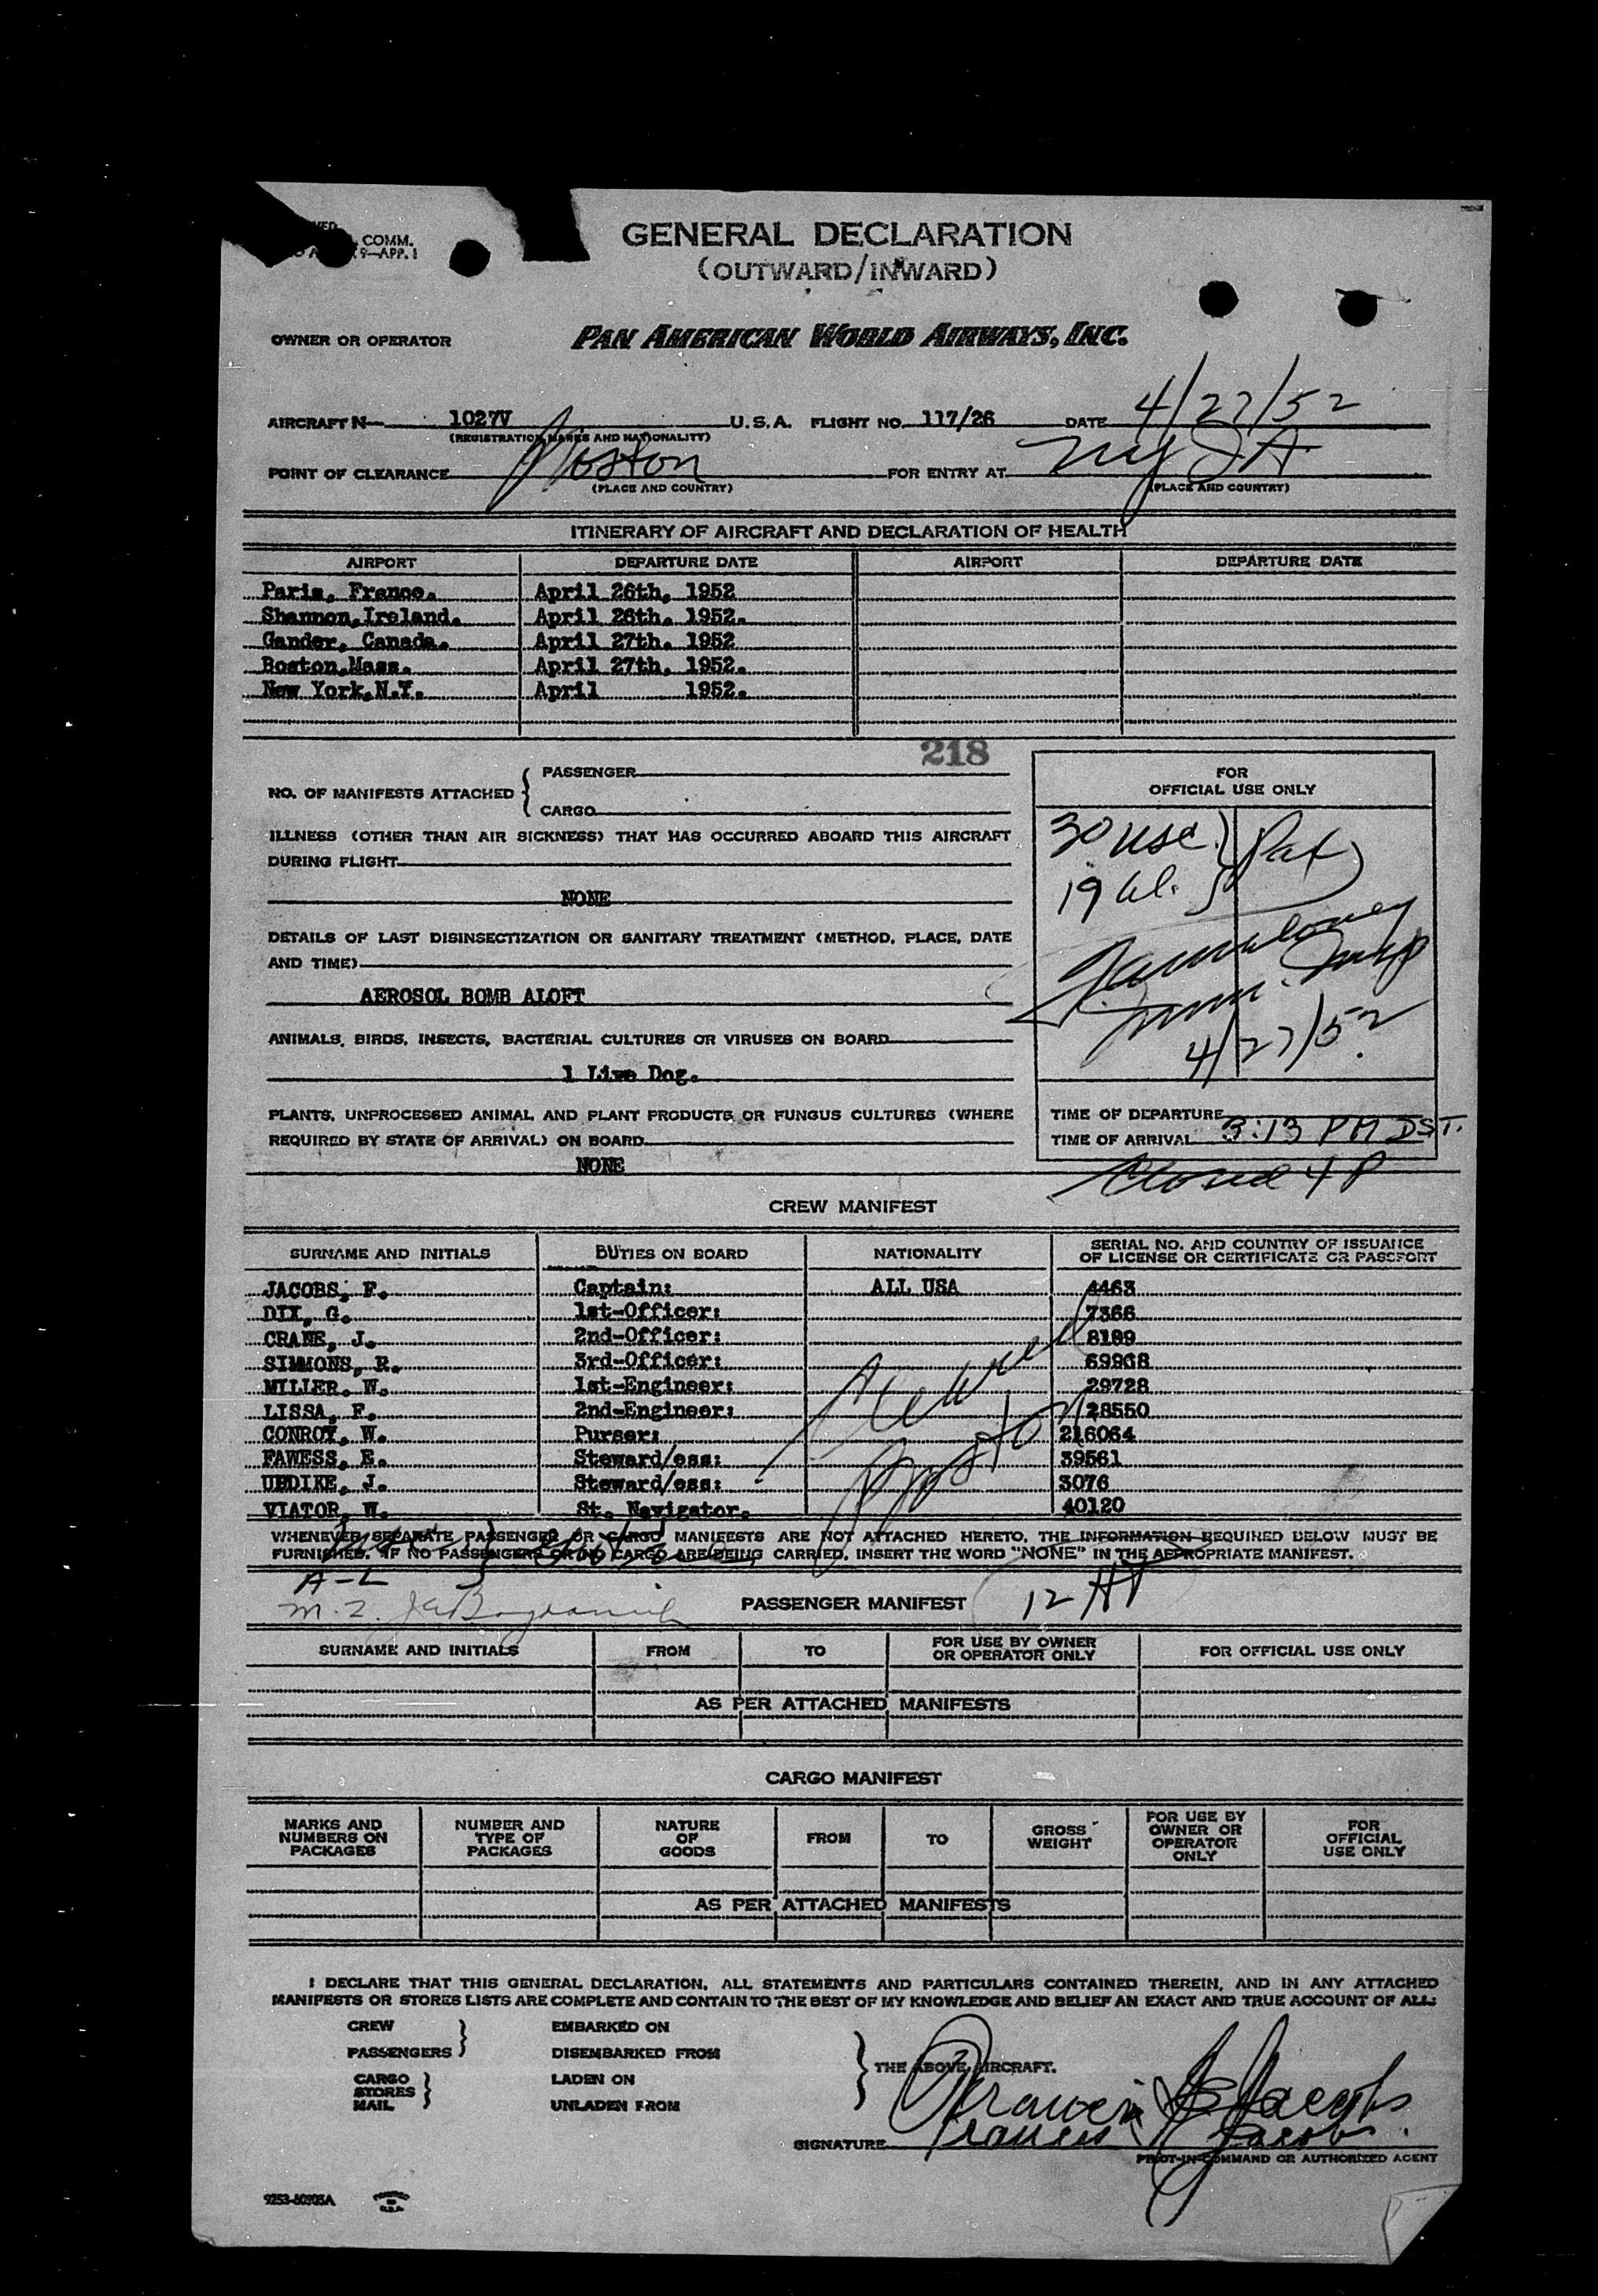 COMM.
9—APP. 1
GENERAL DECLARATION
(OUTWARD/INWARD)
OWNER OR OPERATOR PAN AMERICAN WORLD AIRWAYS, INC.
AIRCRAFT N— 1027V U.S.A. FLIGHT NO. 117/26 DATE 4/27/52
(REGISTRATION MARKS AND NATIONALITY)
POINT OF CLEARANCE Boston FOR ENTRY AT NY
(PLACE AND COUNTRY) (PLACE AND COUNTRY)
ITINERARY OF AIRCRAFT AND DECLARATION OF HEALTH
AIRPORT DEPARTURE DATE AIRPORT DEPARTURE DATE
Paris, France. April 26th, 1952
Shannon,Ireland. April 26th. 1952.
Gander, Canada. April 27th. 1952
Boston,Mass. April 27th, 1952.
New York,N.Y. April 1952.
218
NO. OF MANIFESTS ATTACHED { PASSENGER
CARGO
ILLNESS (OTHER THAN AIR SICKNESS) THAT HAS OCCURRED ABOARD THIS AIRCRAFT
DURING FLIGHT
NONE
DETAILS OF LAST DISINSECTIZATION OR SANITARY TREATMENT (METHOD, PLACE, DATE
AND TIME)
AEROSOL BOMB ALOFT
ANIMALS, BIRDS, INSECTS, BACTERIAL CULTURES OR VIRUSES ON BOARD
1 Live Dog.
PLANTS, UNPROCESSED ANIMAL AND PLANT PRODUCTS OR FUNGUS CULTURES (WHERE
REQUIRED BY STATE OF ARRIVAL) ON BOARD
NONE
FOR
OFFICIAL USE ONLY
30 USC
19 al.
4/27/52
TIME OF DEPARTURE
TIME OF ARRIVAL 3:13 PM DST.
Closed 4 P
CREW MANIFEST
SURNAME AND INITIALS DUTIES ON BOARD NATIONALITY SERIAL NO. AND COUNTRY OF ISSUANCE
OF LICENSE OR CERTIFICATE OR PASSPORT
JACOBS, F. Captain: ALL USA 4463
DIX, G. 1st-Officer: 7366
CRANE, J. 2nd-Officer: 8199
SIMMONS, R. 3rd-Officer: 69968
MILLER. W. 1st-Engineer: 29728
LISSA, F. 2nd-Engineer: 28550
CONROY, W. Purser: 216064
FAWESS, E. Steward/ess: 39561
UPDIKE, J. Steward/ess: 3076
VIATOR, W. St. Navigator. 40120
Boston
WHENEVER SEPARATE PASSENGER OR CARGO MANIFESTS ARE NOT ATTACHED HERETO, THE INFORMATION REQUIRED BELOW MUST BE
FURNISHED. IF NO PASSENGERS OR NO CARGO ARE BEING CARRIED, INSERT THE WORD "NONE" IN THE APPROPRIATE MANIFEST.
A-L
M.Z.
PASSENGER MANIFEST
SURNAME AND INITIALS FROM TO FOR USE BY OWNER
OR OPERATOR ONLY FOR OFFICIAL USE ONLY
AS PER ATTACHED MANIFESTS
CARGO MANIFEST
MARKS AND
NUMBERS ON
PACKAGES NUMBER AND
TYPE OF
PACKAGES NATURE
OF
GOODS FROM TO GROSS
WEIGHT FOR USE BY
OWNER OR
OPERATOR
ONLY FOR
OFFICIAL
USE ONLY
AS PER ATTACHED MANIFESTS
I DECLARE THAT THIS GENERAL DECLARATION, ALL STATEMENTS AND PARTICULARS CONTAINED THEREIN, AND IN ANY ATTACHED
MANIFESTS OR STORES LISTS ARE COMPLETE AND CONTAIN TO THE BEST OF MY KNOWLEDGE AND BELIEF AN EXACT AND TRUE ACCOUNT OF ALL:
CREW EMBARKED ON
PASSENGERS DISEMBARKED FROM
CARGO LADEN ON
STORES
MAIL UNLADEN FROM
THE ABOVE AIRCRAFT.
Francis Jacobs
SIGNATURE Francis Jacobs.
PILOT-IN-COMMAND OR AUTHORIZED AGENT
PRINTED
IN
U.S.A.